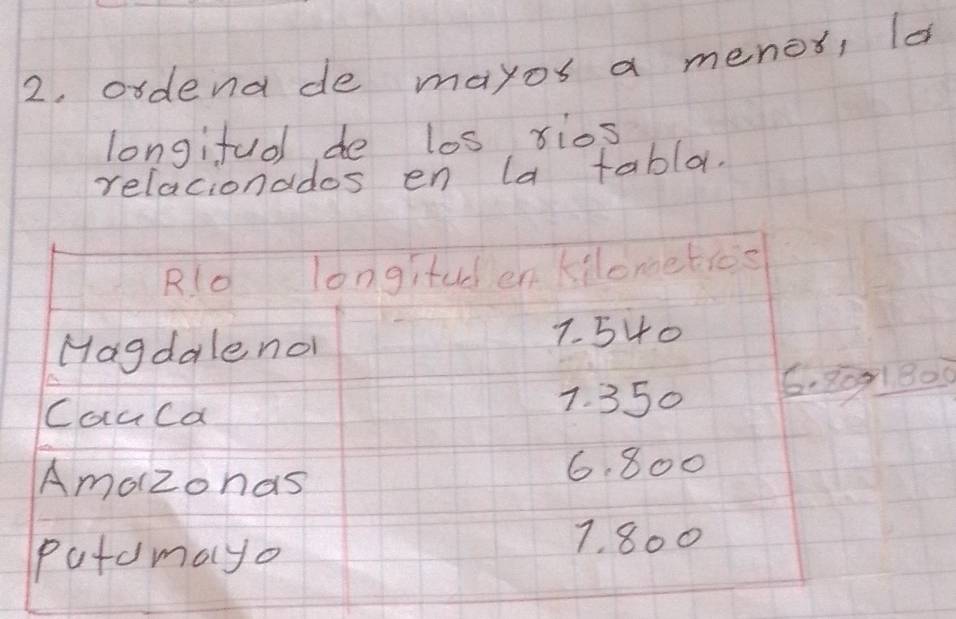 2. ordena de mayor a menor, la
longitud de los rios
relacionados en la tabla.
RIO longitud en Kilometros
Magdalena 1.540
Cauca 1.350
Amazonas 6.800
Putumayo 1.800